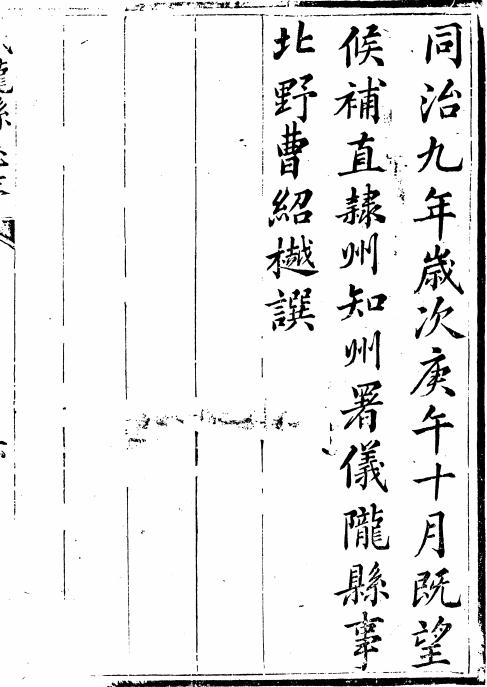 同治九年歲次庚午十月既望
候補直隸州知州署儀隴縣事
北野曹紹樾譔
隴縣